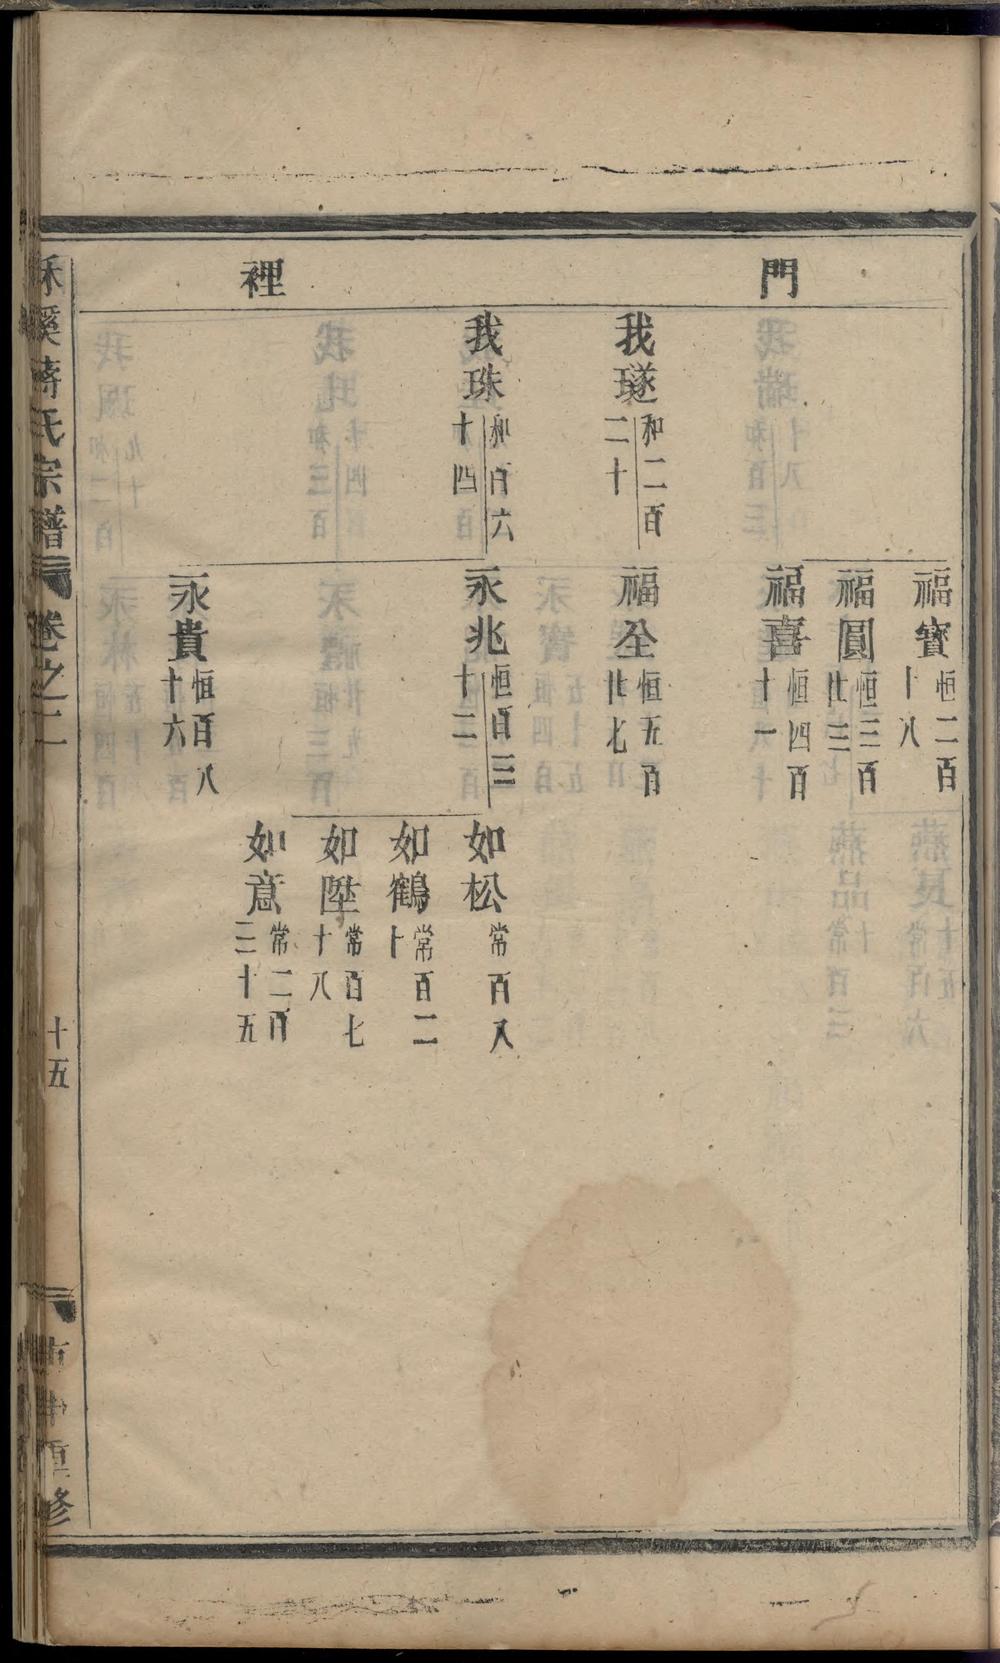 門
裡
我璲 和二百二十
我珠 和百六十四
福寳 恒二百十八
福圓 恒三百廿三
福喜 恒四百十一
福全 恒五百廿七
永兆 恒百三十二
永貴 恒百八十六
如松 常百八
如鶴 常百二十
如陞 常百七十八
如意 常二百三十五
溪蔣氏宗譜
卷之二
十五
重修